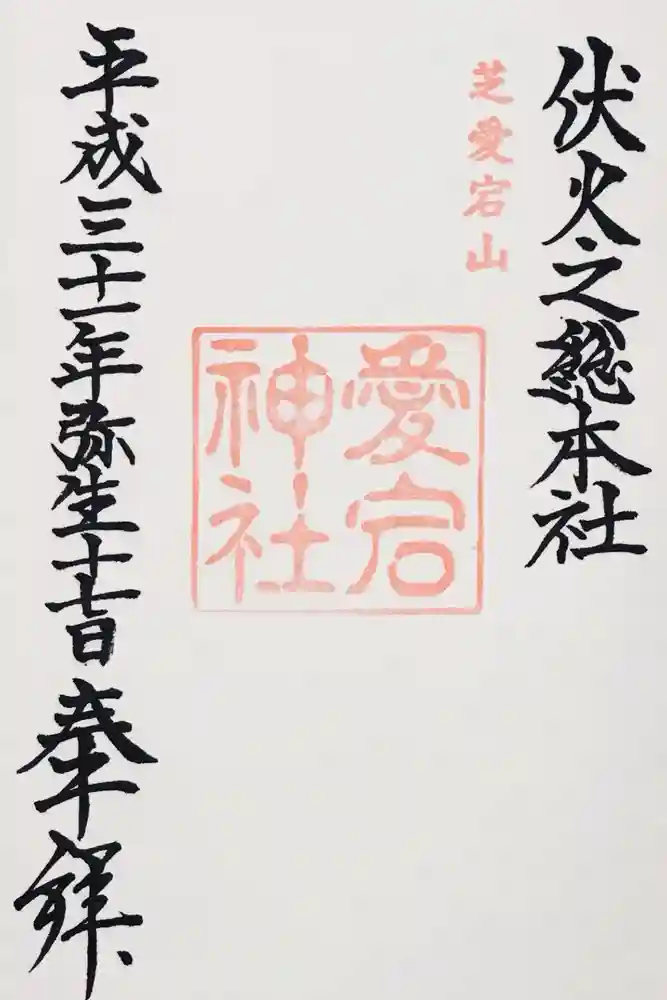 伏火之総本社
芝愛宕山
愛宕
神社
平成三十一年弥生十七日奉拝